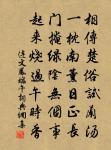 相傳楚俗試蘭湯
一枕南薰日正長
門掩綠陰無個事
起來燒過午時香
連文鳳端午詞典網奉